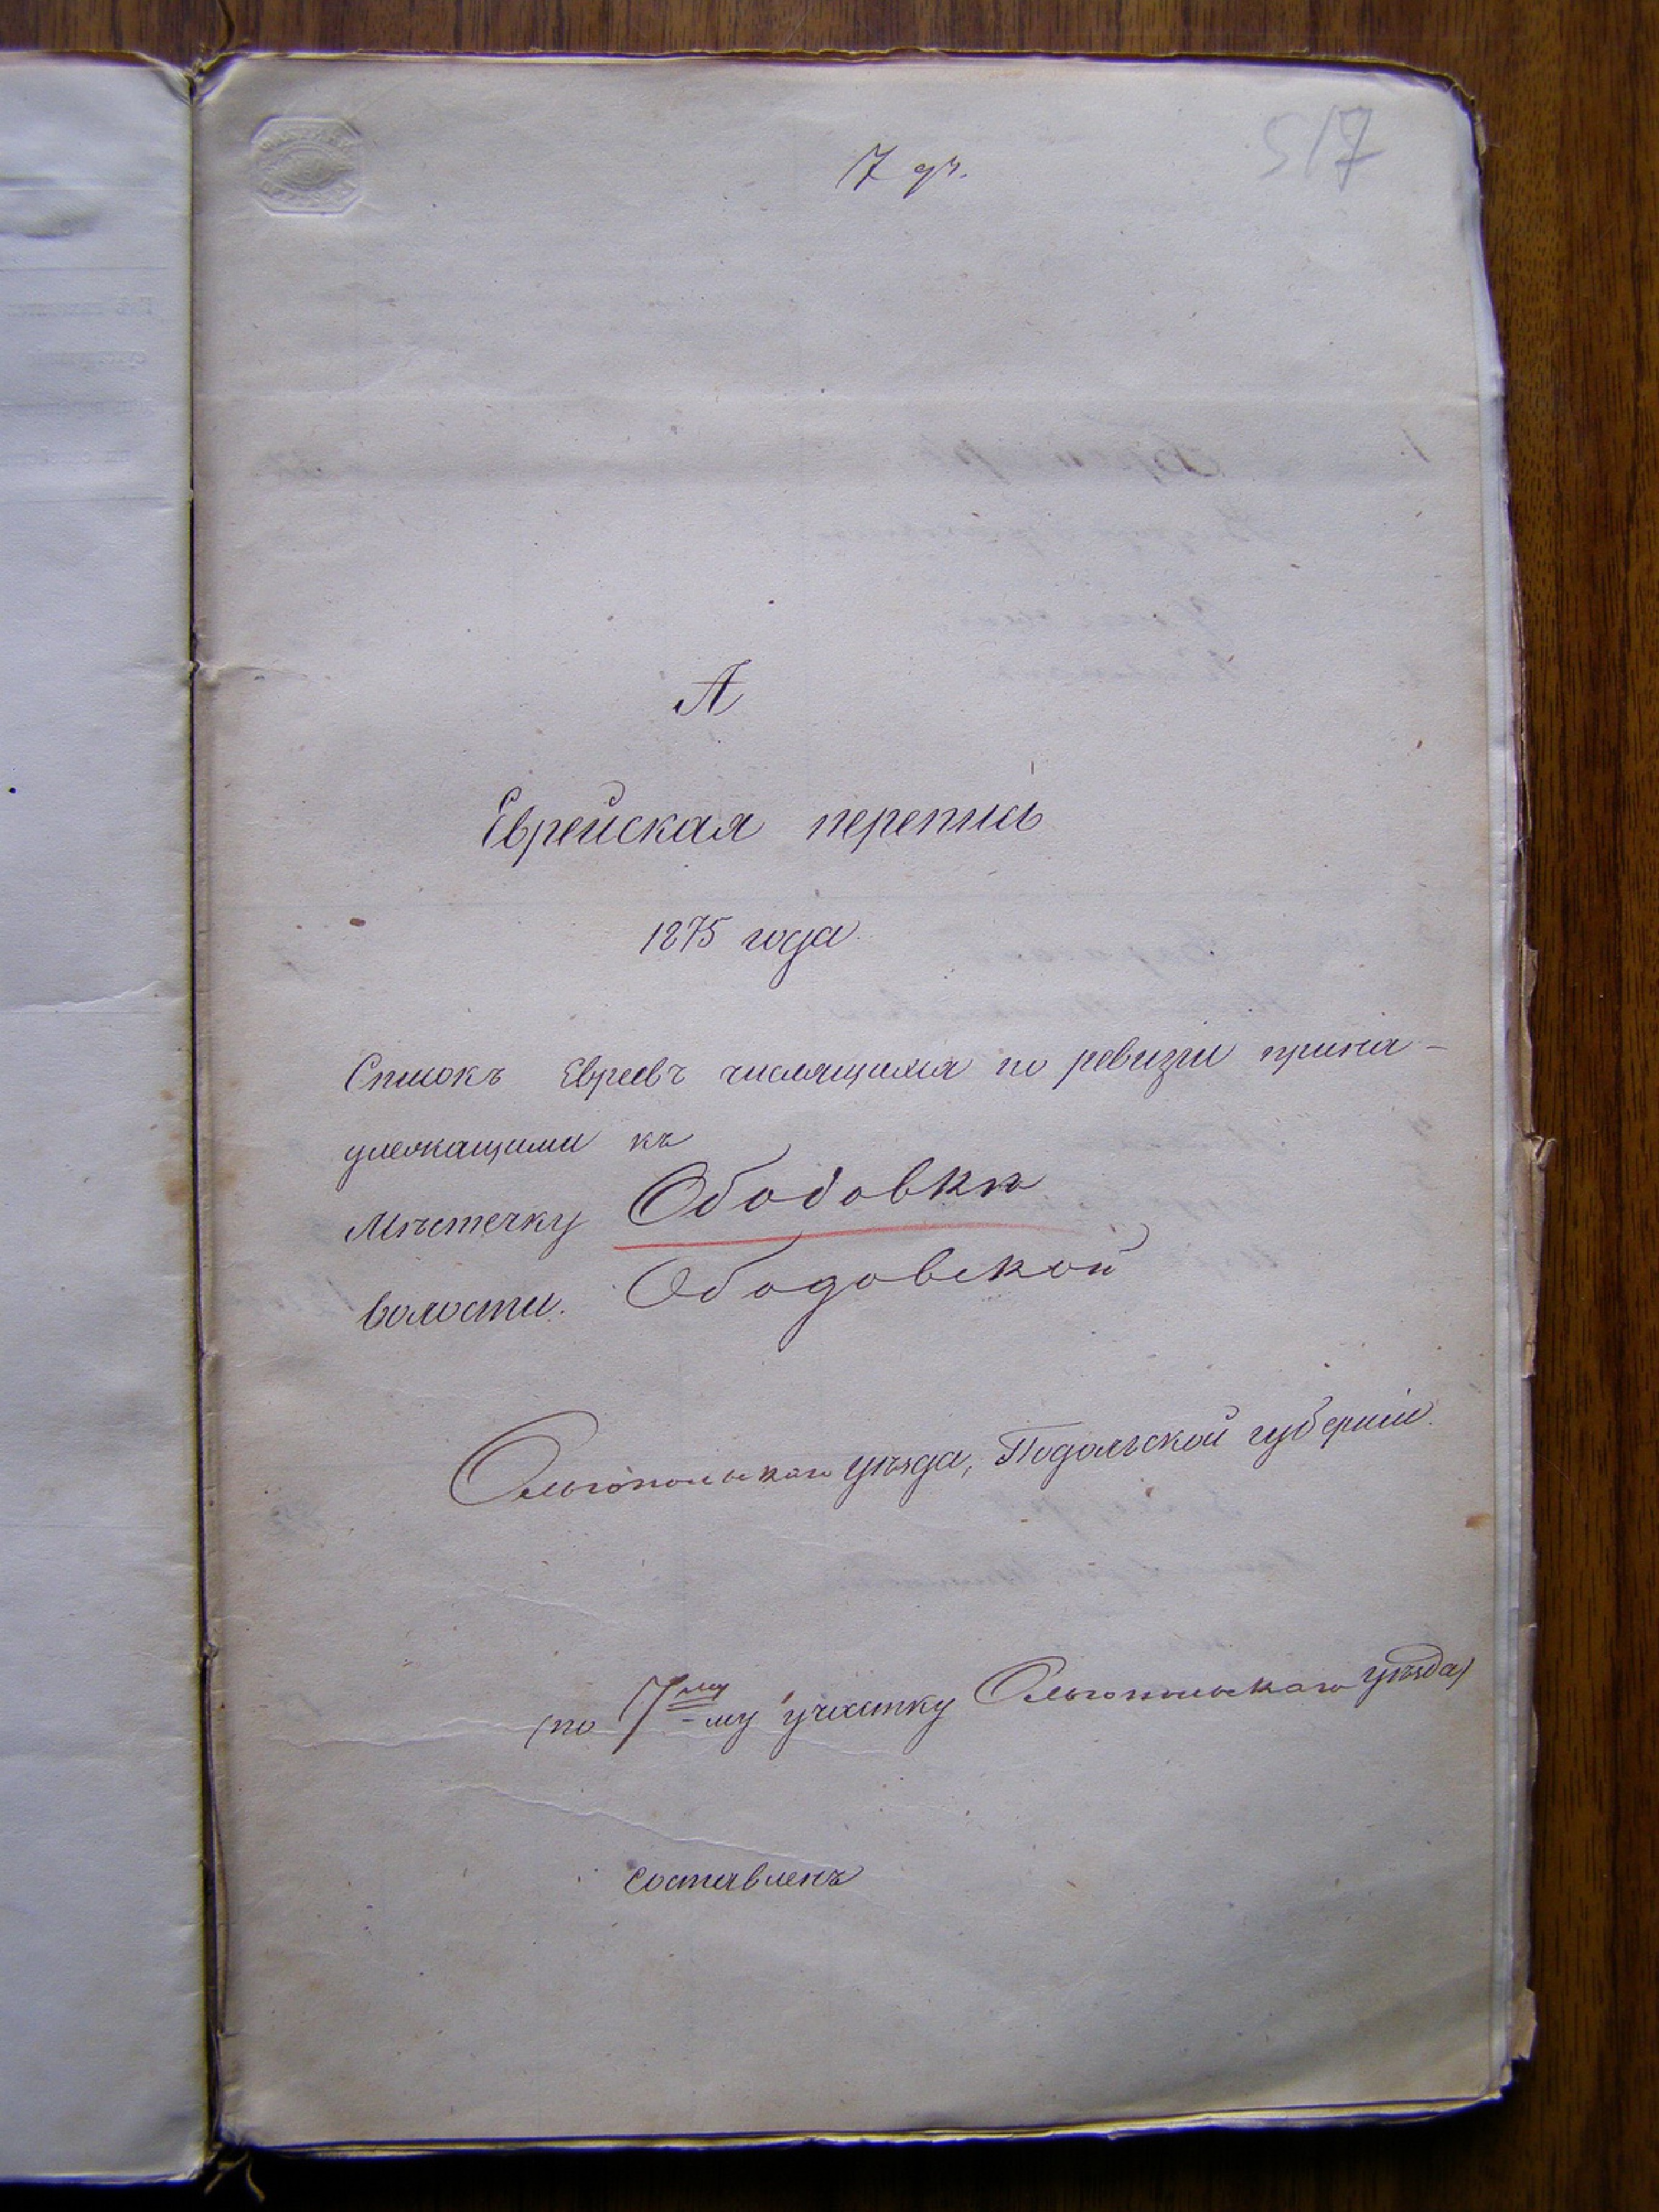 7 уч.
517
А
Еврейская перепись
1875 года
Списокъ Евреевъ числящимся по ревизіи прина-
длежащими къ
Мѣстечку Ободовкѣ
волости. Ободовской
Ольгопольскаго уѣзда, Подольской губерніи.
(по 7му -му участку Ольгопольскаго уѣзда)
составленъ